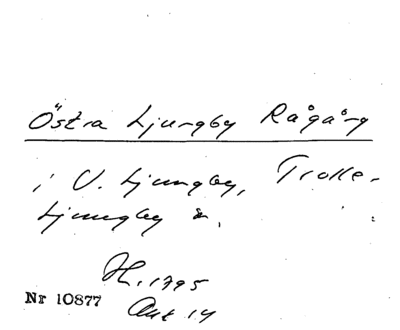 Östra Ljungby Rågång
i V. Ljungby, Trolle-
Ljungby
H. 1795
Nr 10877 Akt 14